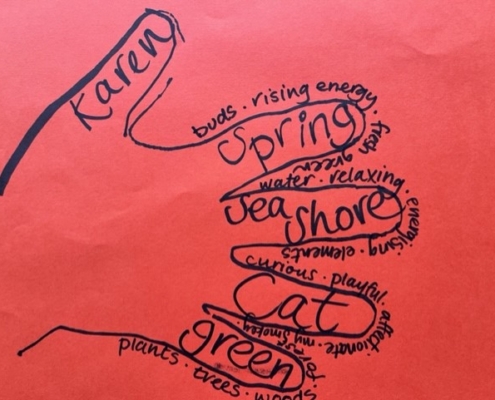 Karen
buds · rising energy · fresh green
Spring
water · relaxing · energising · elements ·
Sea Shore
curious · playful · affectionate · my
Cat
green
plants · trees · woods